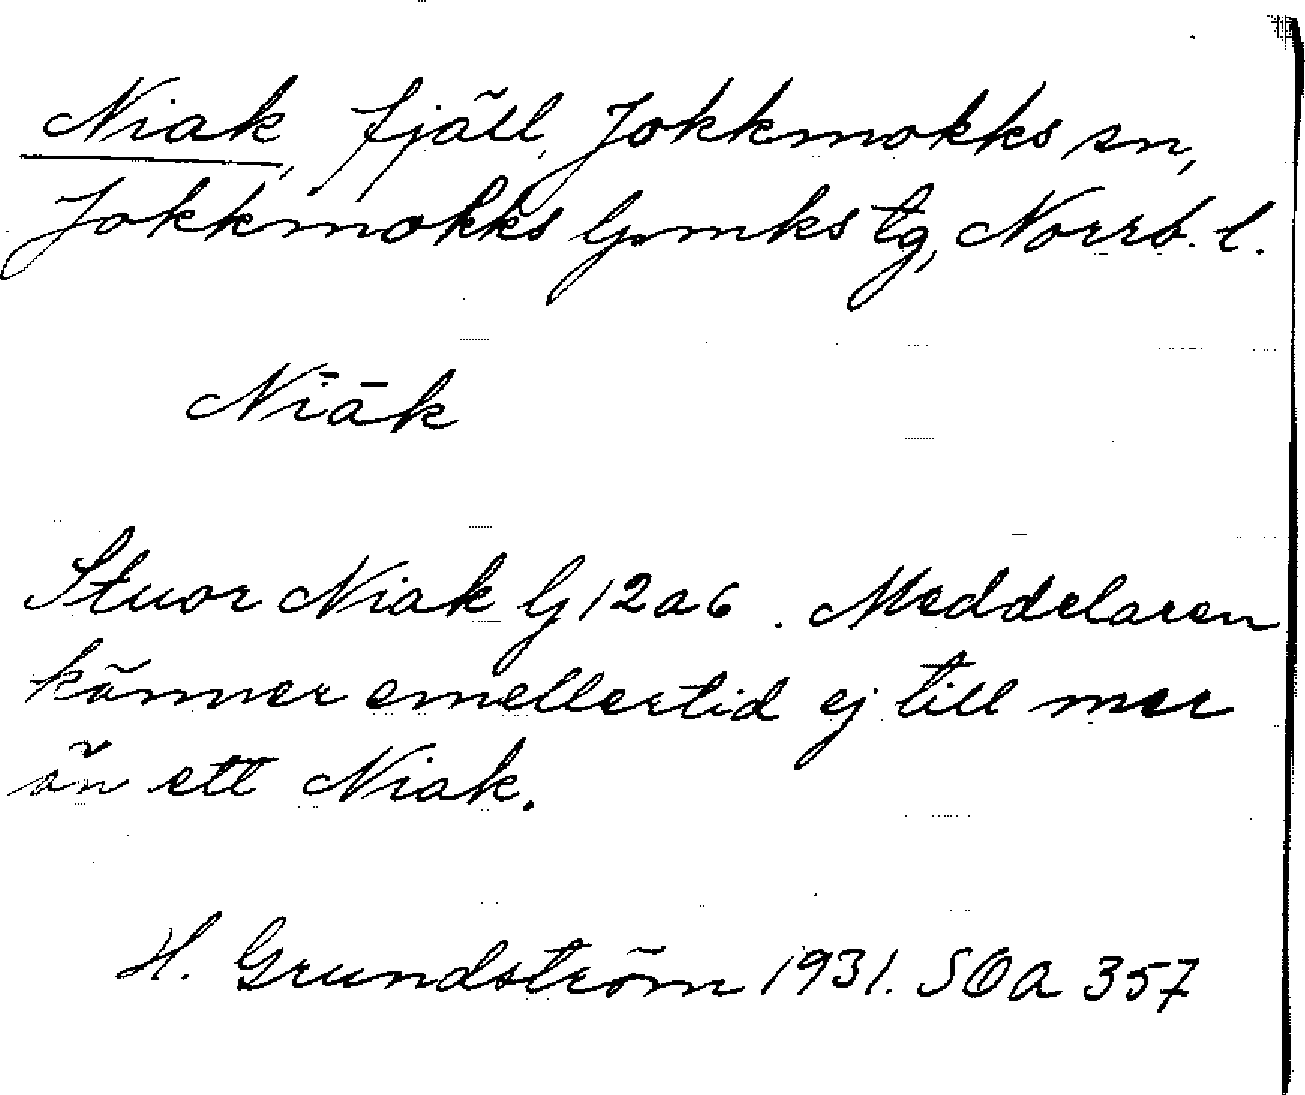 Niak, fjäll, Jokkmokks sn,
Jokkmokks Gnmks tg, Norrb. l.
Nīāk
Stuor Niak G12a6. Meddelaren
känner emellertid ej till mer
än ett Niak.
H. Grundström 1931. SOA 357